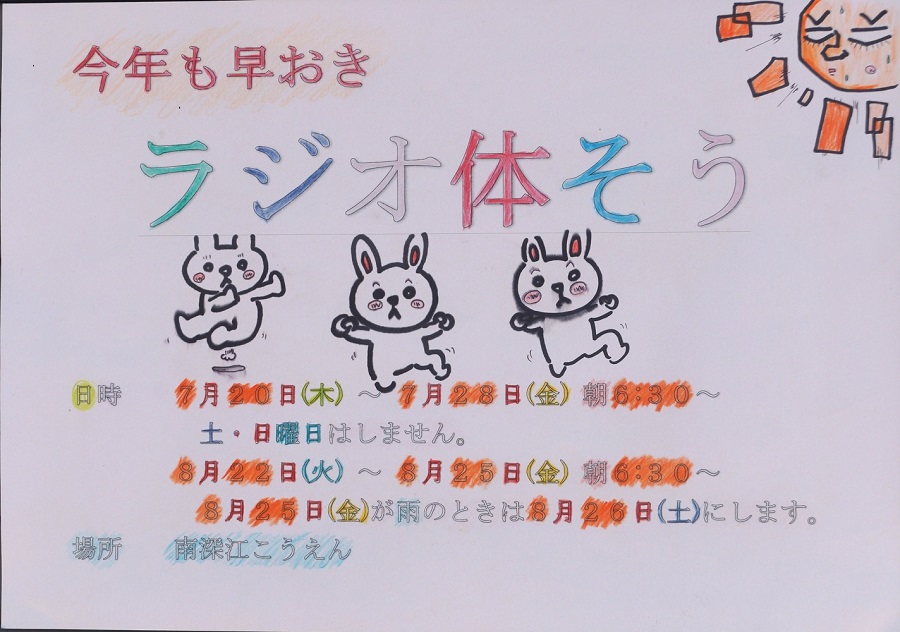 今年も早おき
ラジオ体そう
日時 7月20日(木) ～ 7月28日(金) 朝6:30～
土・日曜日はしません。
8月22日(火) ～ 8月25日(金) 朝6:30～
8月25日(金)が雨のときは8月26日(土)にします。
場所 南深江こうえん